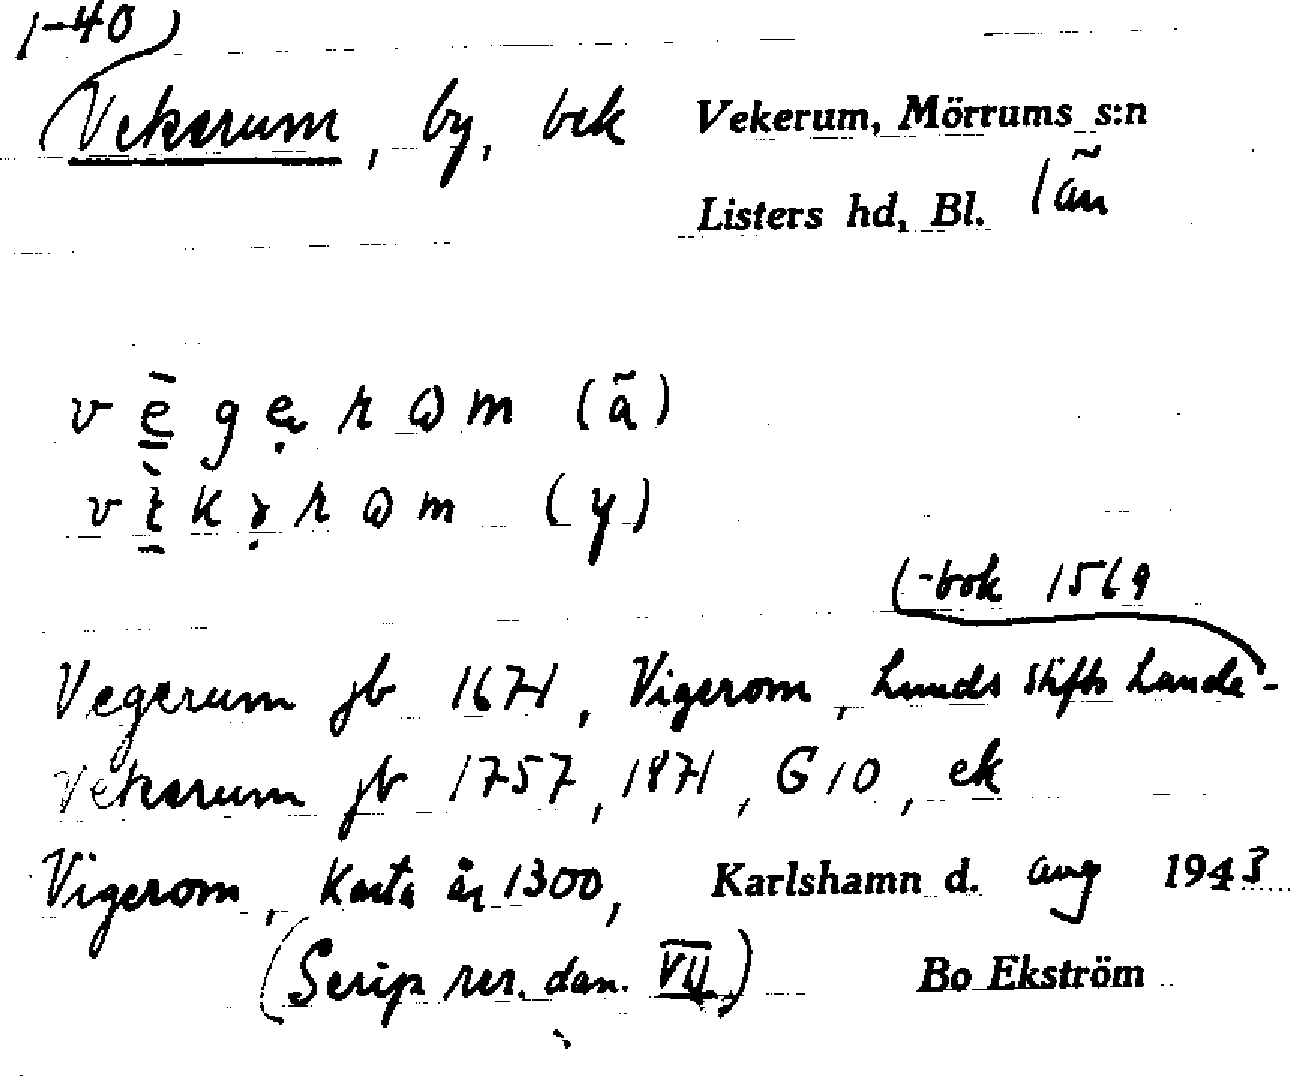 1-40
Vekerum, by, bek Vekerum, Mörrums s:n
Listers hd, Bl. län
v ē g e r ω m (ã)
v k r ω m (y)
(-bok 1569
Vegerum jb 1671, Vigerom, Lunds stifts Lande-
Vekerum jb 1757, 1871, G 10, ek
Vigerom, Karta år 1300, Karlshamn d. aug 1943
(Scrip rer. dan. VII) Bo Ekström